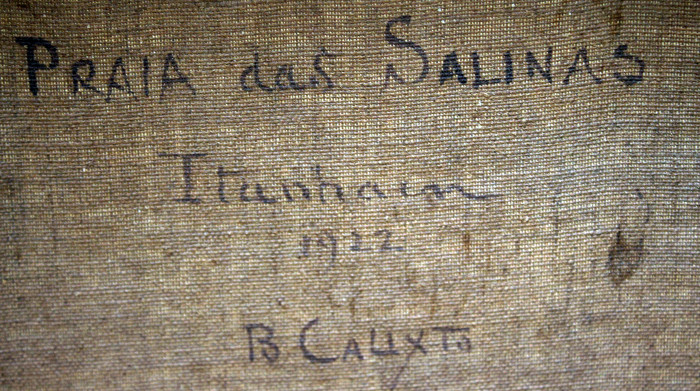 PRAIA das SALINAS
Itanhaen
1922
B CALIXTO